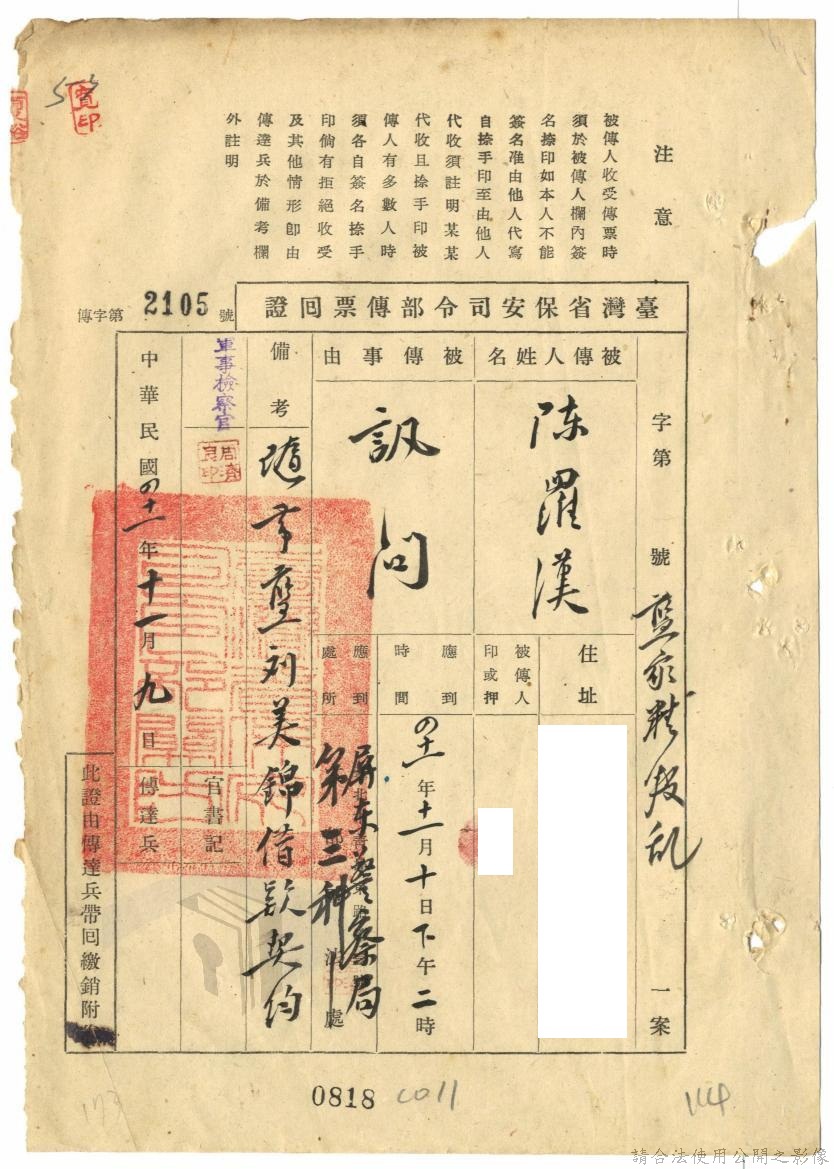 注意
被傳人收受傳票時
須於被傳人欄內簽
名捺印如本人不能
簽名准由他人代寫
自捺手印至由他人
代收須註明某某
代收且捺手印被
傳人有多數人時
須各自簽名捺手
印倘有拒絕收受
及其他情形卽由
傳達兵於備考欄
外註明
臺灣省保安司令部傳票回證
傳字第2105號
字第 號 藍家精叛乱 一案
被傳人姓名
陈羅漢
住址
被傳人印或押
被傳事由
訊問
應到時間
四十一年十一月十日下午二時
應到處所
屏东警察局
第三科
處
備考
隨帶藍刘美錦借款契約
軍事檢察官
書記官
傳達兵
中華民國四十一年十一月九日
此證由傳達兵帶回繳銷附
0818
CO11
114
173
請合法使用公開之影像